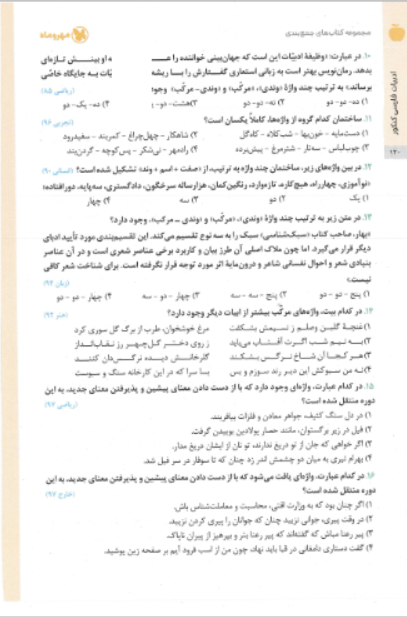 مجموعه کتاب‌های جمع‌بندی
مهروماه
ادبیات فارسی کنکور
۱۴۰
۱۰. در عبارت: «وظیفهٔ ادبیّات این است که جهان‌بینی خواننده را عـــ ه او بینـــش تازه‌ای
بدهد. رمان‌نویس بهتر است به زبانی استعاری گفتـارش را بـا ریشه یّات بـه جایگاه خاصّی
برساند» به ترتیب چند واژهٔ «وندی»، «مرکّب» و «وندی - مرکّب» وجود (ریاضی ۸۵)
۱) ده- دو- دو ۲) نه- دو- دو ۳) هشت- دو- ۴) ده- یک- دو
۱۱. ساختمان کدام گروه از واژه‌ها، کاملاً یکسان است؟ (تجربی ۹۶)
۱) دست‌مایه - خون‌بها - شب‌کلاه - کاه‌گل ۲) شاهکار - چهل‌چراغ - کمربند - سفیدرود
۳) چوب‌لباس - سه‌تار - شترمرغ - پیش‌پرده ۴) زادمهر - نی‌شکر - پس‌کوچه - گردن‌بند
۱۲. در بین واژه‌های زیر، ساختمان چند واژه به ترتیب، از «صفت + اسم + وند» تشکیل شده‌است؟ (انسانی ۹۰)
«نوآموزی، چهارراه، هیچ‌کاره، تازه‌وارد، رنگین‌کمان، هزارساله سرخگون، دادگستری، سه‌پایه، دورافتاده»
۱) یک ۲) دو ۳) سه ۴) چهار
۱۳. در متن زیر به ترتیب چند واژهٔ «وندی»، «مرکّب» و «وندی ـ مرکب»، وجود دارد؟
«بهار، صاحب کتاب «سبک‌شناسی» سبک را به سه نوع تقسیم می‌کند. این تقسیم‌بندی مورد تأیید ادبای
دیگر قرار می‌گیرد. اما چون ملاک اصلی آن طرز بیان و کاربرد برخی عناصر شعری است و در آن عناصر
بنیادی شعر و احوال نفسانی شاعر و درون‌مایهٔ اثر مورد توجه قرار نگرفته است. برای شناخت شعر کافی
نیست.» (زبان ۹۲)
۱) پنج - دو - دو ۲) پنج - سه - سه ۳) چهار - دو - سه ۴) چهار - دو - دو
۱۴. در کدام بیت، واژه‌های مرکّب بیشتر از ابیات دیگر وجود دارد؟ (هنر ۹۲)
۱) غنچهٔ گلبن وصلم ز نسیمش بشکفت مرغ خوشخوان، طرب از برگ گل سوری کرد
۲) بـه نیـم شـب اگـرت آفتـاب می‌بایـد ز روی دختـر گل‌چهـر رز نقـاب‌انـداز
۳) هـر کـجا آن شـاخ نـرگـس بـشکفـد گلرخانـش دیـده نرگـس‌دان کننـد
۴) نه من سبوکش این دیر رند سوزم و بس بسا سرا که در این کارخانه سنگ و سبوست
۱۵. در کدام عبارت، واژه‌ای وجود دارد که با از دست دادن معنای پیشین و پذیرفتن معنای جدید، به این
دوره منتقل شده است؟ (ریاضی ۹۷)
۱) در دل سنگ کثیف، جواهر معادن و فلزات بیافریند.
۲) فیل در زیر برگستوان، مانند حصار پولادین بوییدن گرفت.
۳) اگر خواهی که جان از تو دریغ ندارند، تو نان از ایشان دریغ مدار.
۴) بهرام تیری به میان دو چشمش اندر زد چنان که تا سوفار در سر فیل شد.
۱۶. در کدام عبارت، واژه‌ای یافت می‌شود که با از دست دادن معنای پیشین و پذیرفتن معنای جدید، به این
دوره منتقل شده است؟ (خارج ۹۷)
۱) اگر چنان بود که به وزارت افتی، محاسبت و معاملت‌شناس باش.
۲) در وقت پیری، جوانی نزیبد چنان که جوانان را پیری کردن نزیبد.
۳) پیر رعنا مباش که گفته‌اند که پیر رعنا بتر و بپرهیز از پیران ناپاک.
۴) گفت دستاری دامغانی در قبا باید نهاد، چون من از اسب فرود آیم بر صفحه زین پوشید.